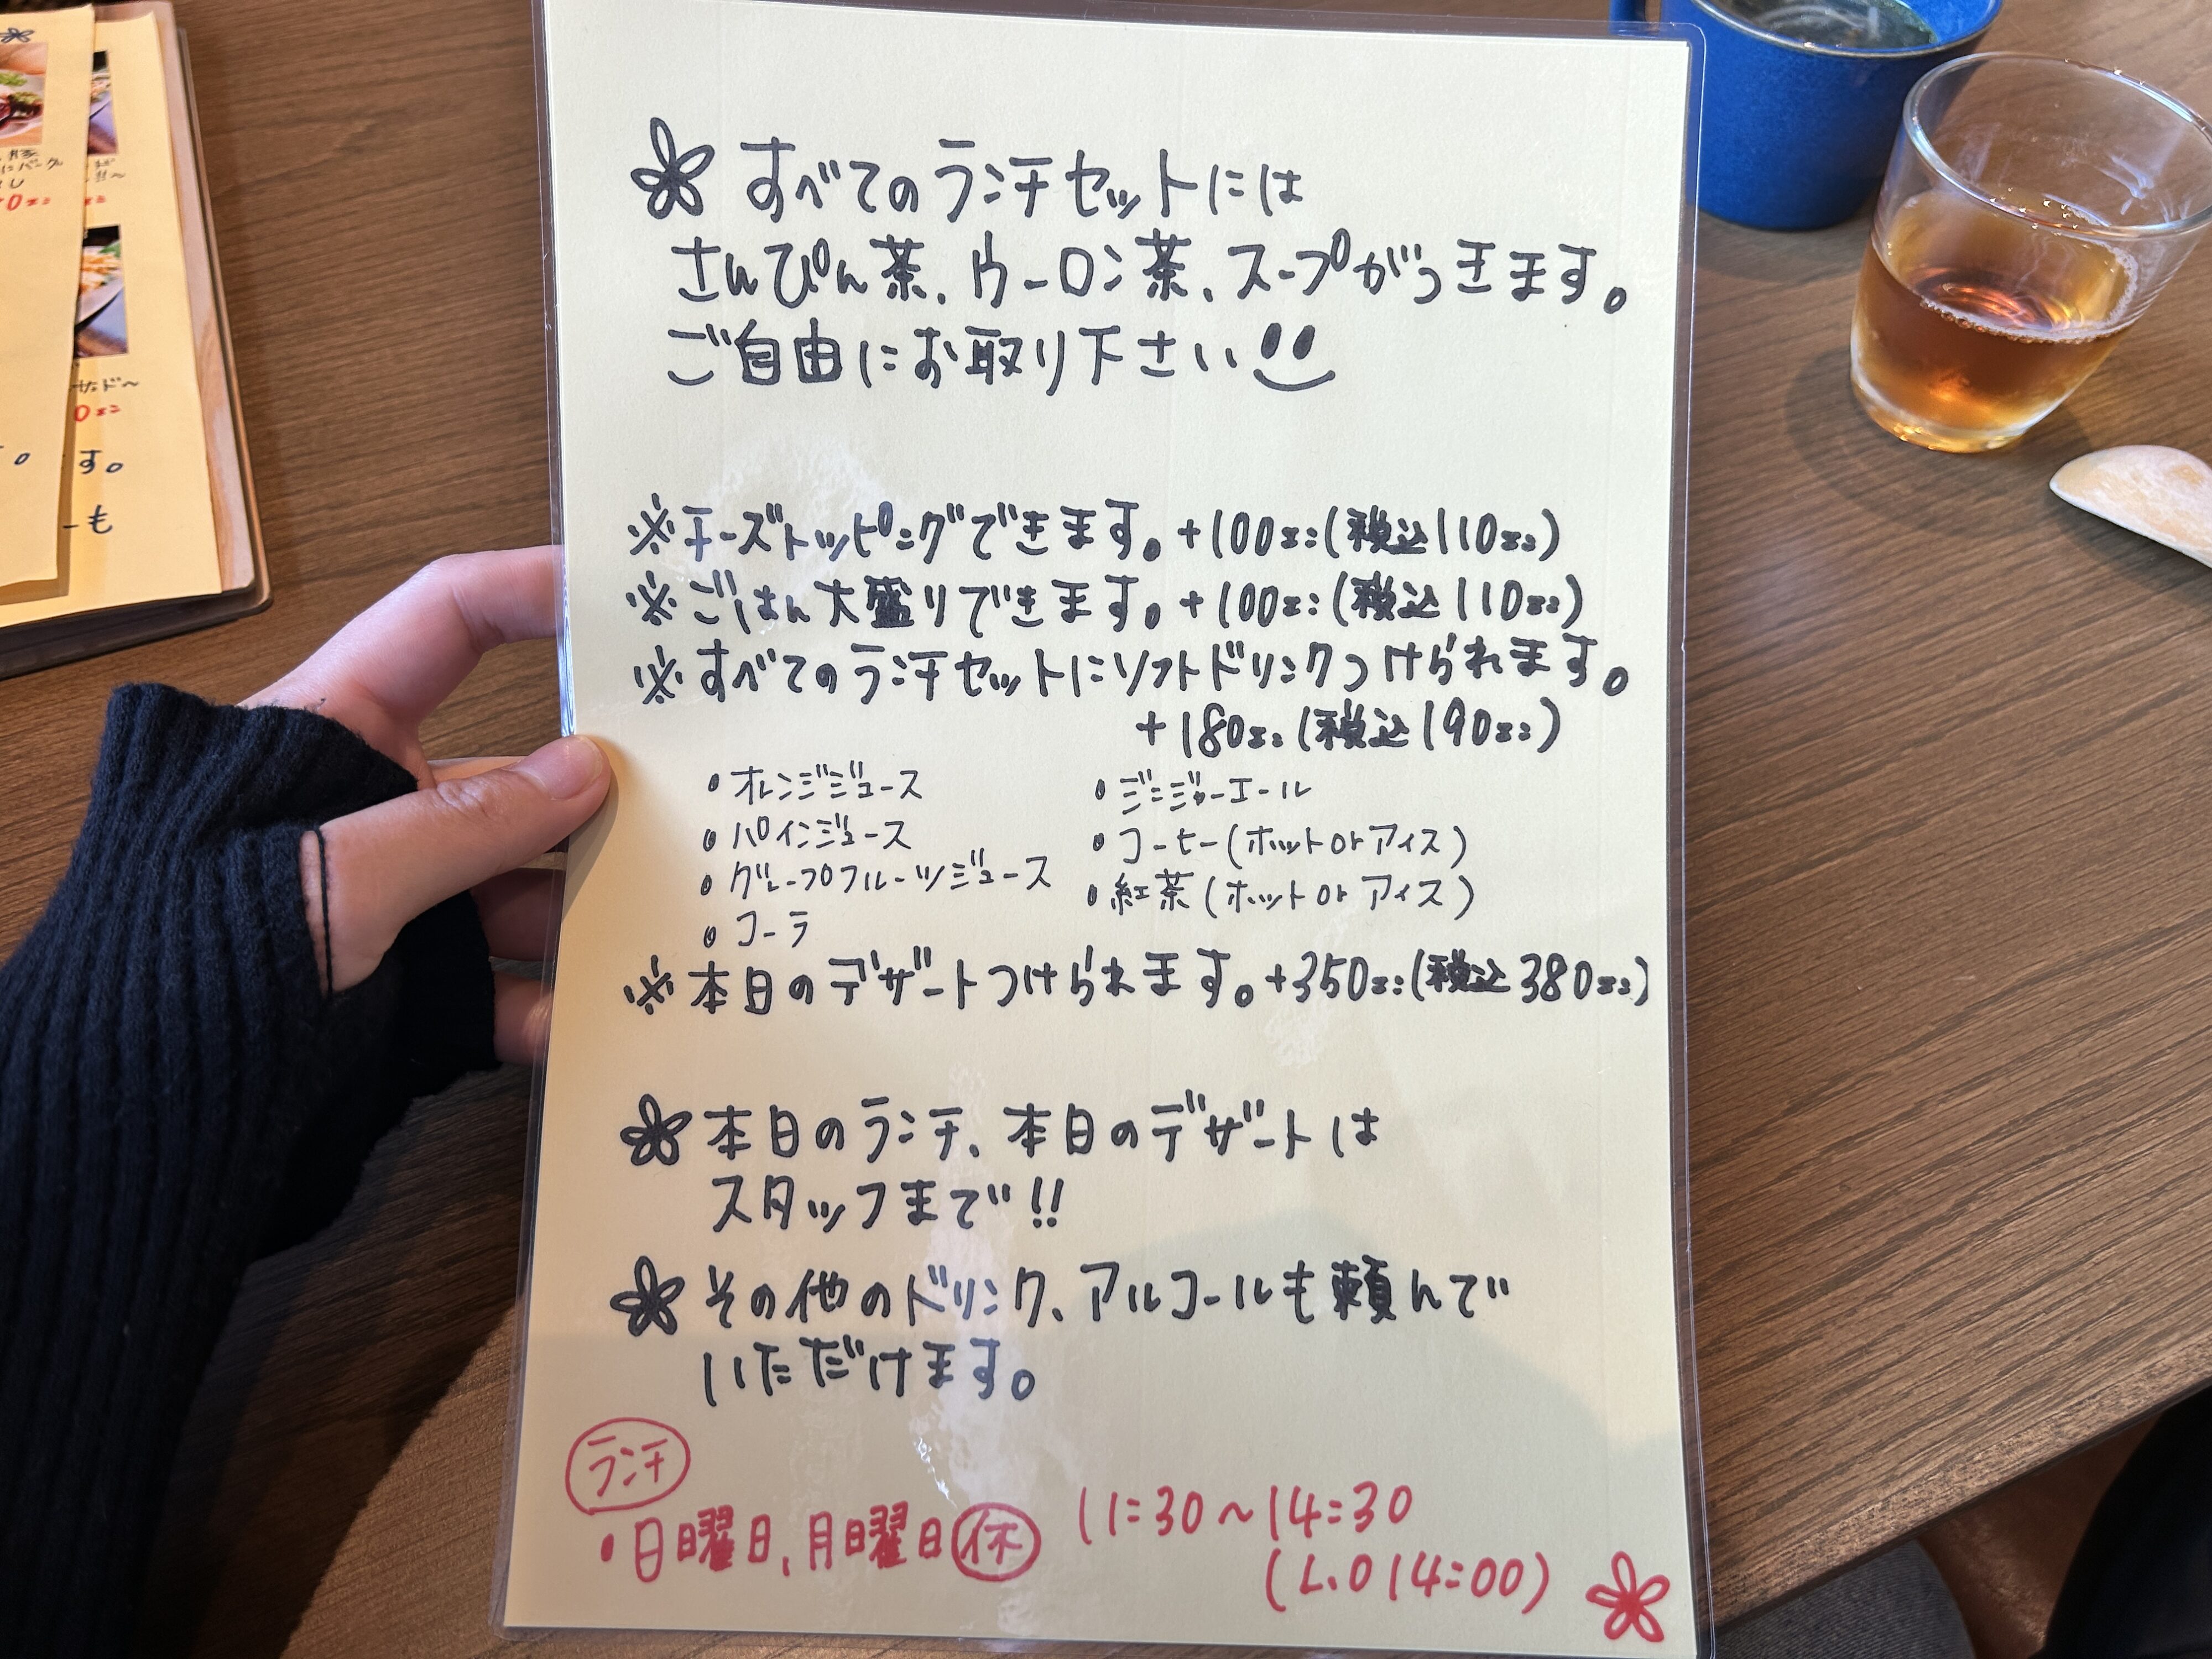 すべてのランチセットには
さんぴん茶、ウーロン茶、スープがつきます。
ご自由にお取り下さい
※チーズトッピングできます。+100円(税込110円)
※ごはん大盛りできます。+100円(税込110円)
※すべてのランチセットにソフトドリンクつけられます。
+180円(税込190円)
・オレンジジュース
・パインジュース
・グレープフルーツジュース
・コーラ
・ジンジャーエール
・コーヒー(ホットorアイス)
・紅茶(ホットorアイス)
※本日のデザートつけられます。+350円(税込380円)
本日のランチ、本日のデザートは
スタッフまで!!
その他のドリンク、アルコールも頼んで
いただけます。
ランチ
・日曜日、月曜日休 11:30〜14:30
(L.O 14:00)